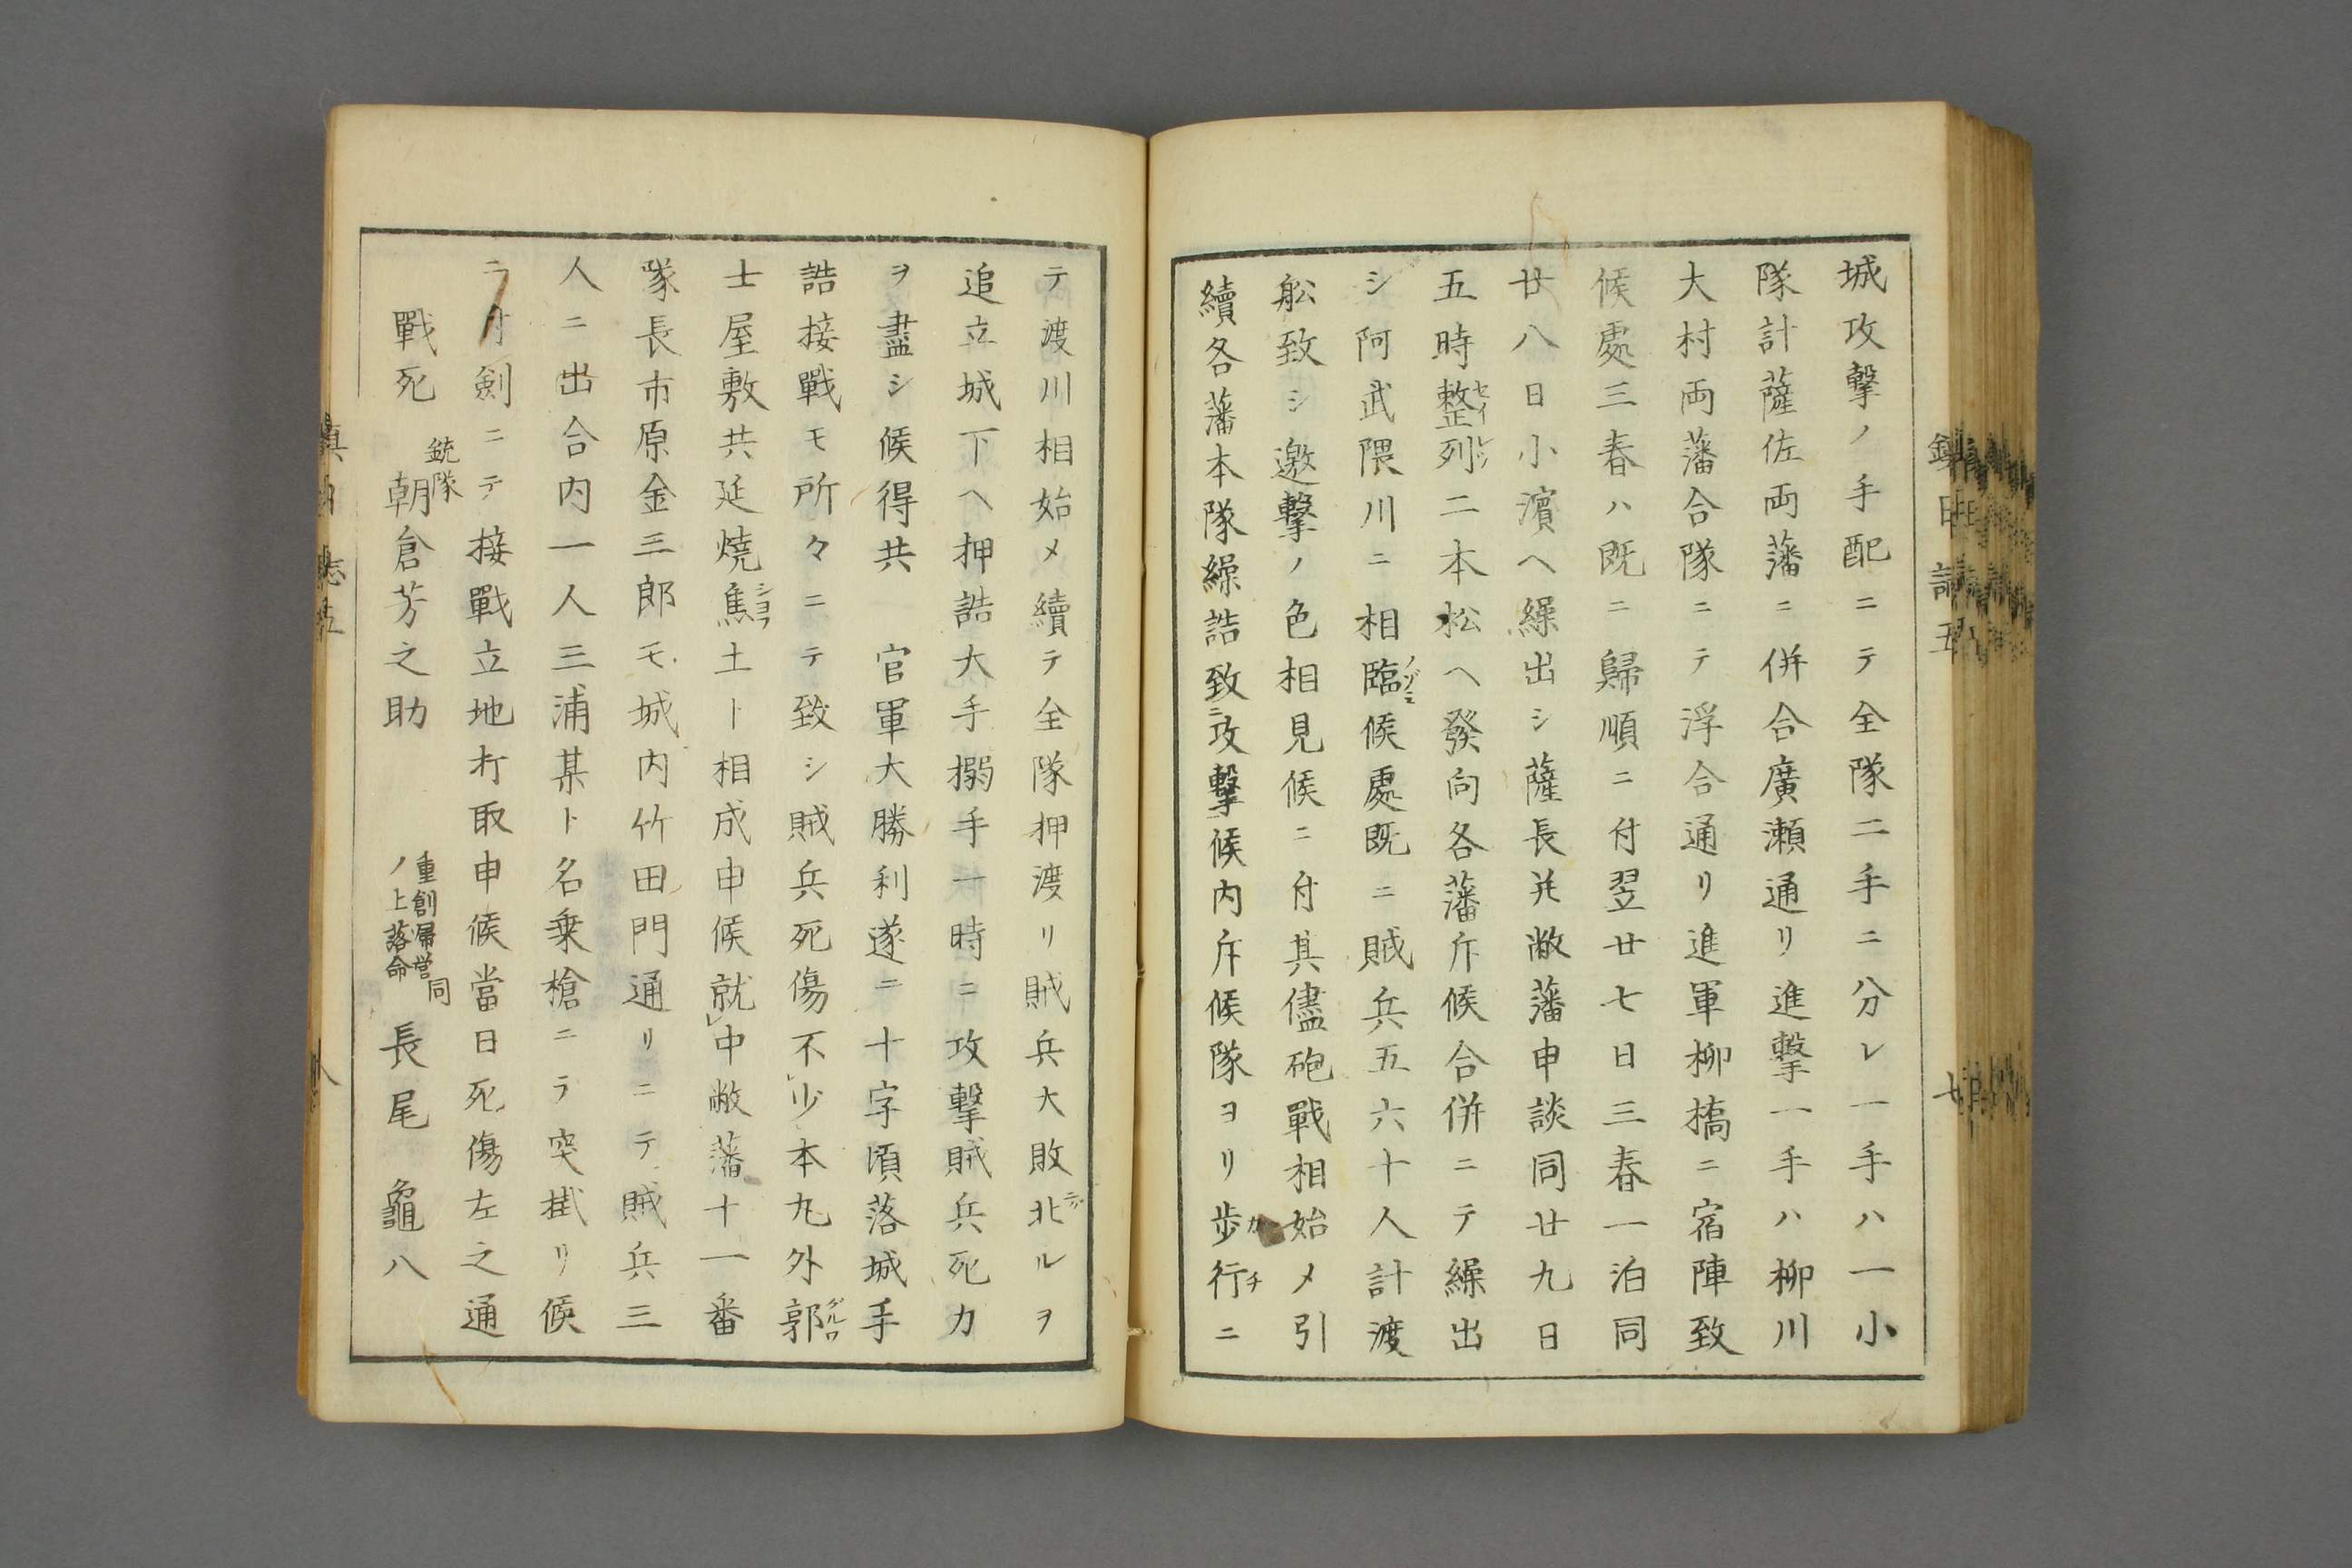 城攻撃ノ手配ニテ全隊二手ニ分レ一手ハ一小
隊計薩佐両藩ニ併合廣瀬通リ進撃一手ハ柳川
大村両藩合隊ニテ浮合通リ進軍柳橋ニ宿陣致
候處三春ハ既ニ歸順ニ付翌廿七日三春一泊同
廿八日小濵ヘ繰出シ薩長并敝藩申談同廿九日
五時整列二本松ヘ發向各藩斥候合併ニテ繰出
セイレツ
シ阿武隈川ニ相臨候處既ニ賊兵五六十人計渡
ノゾミ
舩致シ邀擊ノ色相見候ニ付其儘砲戰相始メ引
續各藩本隊繰詰致攻撃候内斥候隊ヨリ歩行ニ
カチ
テ渡川相始メ續テ全隊押渡リ賊兵大敗北ルヲ
追立城下ヘ押詰大手搦手一時ニ攻撃賊兵死力
ヲ盡シ候得共　官軍大勝利遂ニ十字頃落城手
詰接戰モ所々ニテ致シ賊兵死傷不少本丸外郭
グルワ
士屋敷共延燒焦土ト相成申候就中敝藩十一番
シヨウ
隊長市原金三郎モ城内竹田門通リニテ賊兵三
人ニ出合内一人三浦某ト名乗槍ニテ突掛リ候
ニ付剣ニテ接戰立地打取申候當日死傷左之通
戰死
銃隊
朝倉芳之助
重創帰営
ノ上落命
同
長尾龜八
七
八